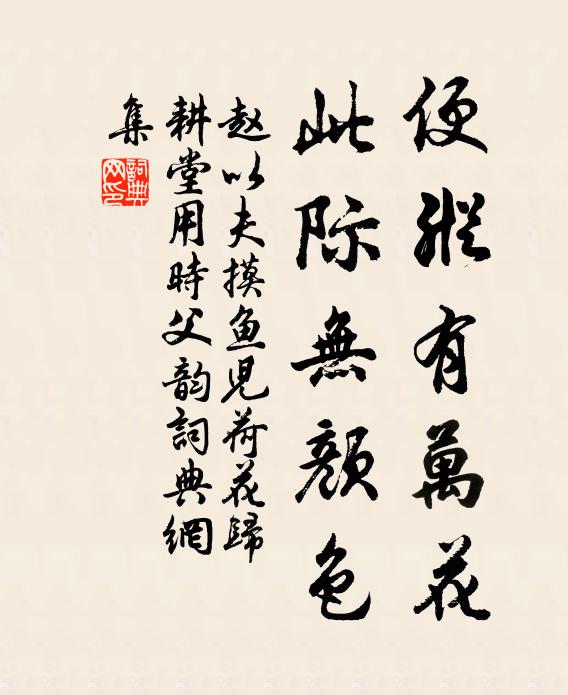 便縱有萬花
此际無顏色
赵以夫摸鱼児荷花歸
耕堂用時父韵詞典網
集
詞典
网印